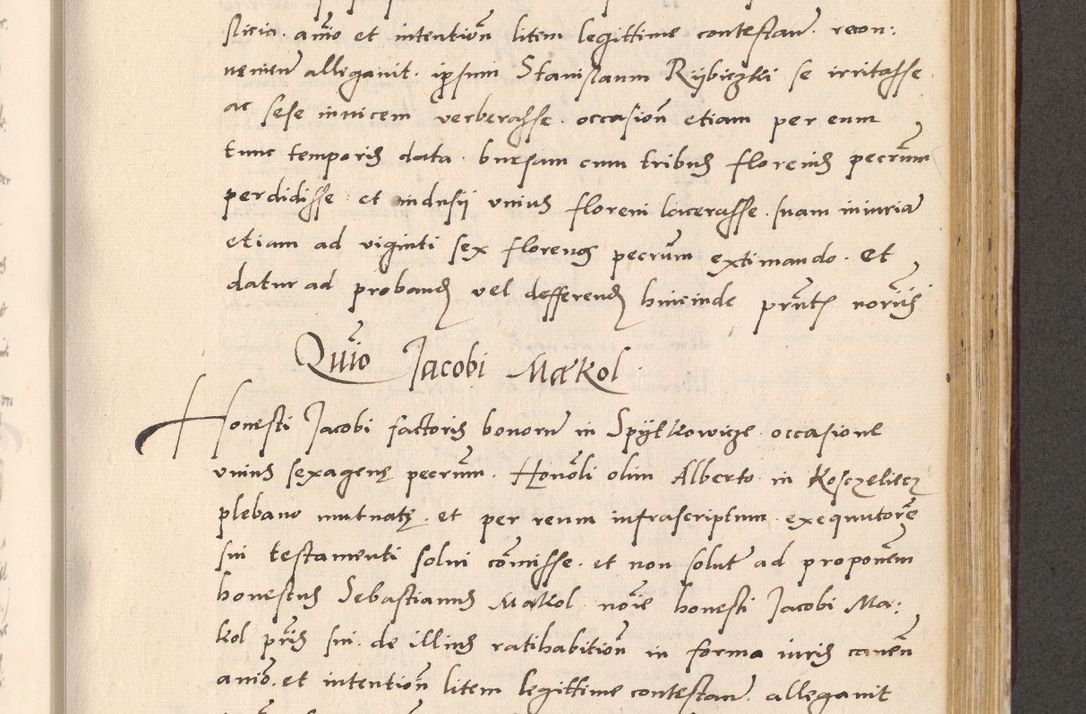 sticia. añio et intentioñ litem legittime contestañ. recon:
nenieñ allegavit. ipsum Stanislaum Rÿbiczki se irritasse
ac sese invicem verberasse. occasioñ etiam per eum
tunc temporis data. bursam cum tribus florenis pecuñ
perdidisse. et indusii unius floreni lacerasse. suam iniuriã
etiam ad viginti sex florenos pecuñ extimando. Et
datur ad proband vel defferend hincinde pñtes noriis
Quio Jacobi Makol
Honesti Jacobi factoris bonorum in Spÿtkowicze. occasione
unius sexagene pecuñ. Honoli olim Alberto in Kosczeliecz
plebano mutuate. et per reum infrascriptum exequutorẽ
sui testamenti solvi cõmisse. et non solute ad proponeñ
honestus Sebastianus Makol noie honesti Jacobi Ma:
kol pris sui. de illius ratihabitioñ in forma iuris caveñ
anio. et intentioñ litem legittime contestañ. allegavit